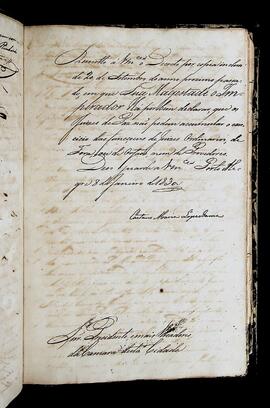 Remetto a Vm.ces o Decreto por copia em data
de 20 de Setembro do anno proximo passa-
do, em que Sua Magestade o Im-
perador ha por bem declarar, que os
Juizes de Paz não podem accumular o exer-
cicio das funcções de Juizes Ordinarios, de
Fora, ou de Orfãos
Deos Guarde a Vm.ces Porto Ale-
gre 8 de Janeiro de 1830
Caetano Maria Lopes Gama
Snr. Presidente, e mais Vereadores
da Camara desta Cidade